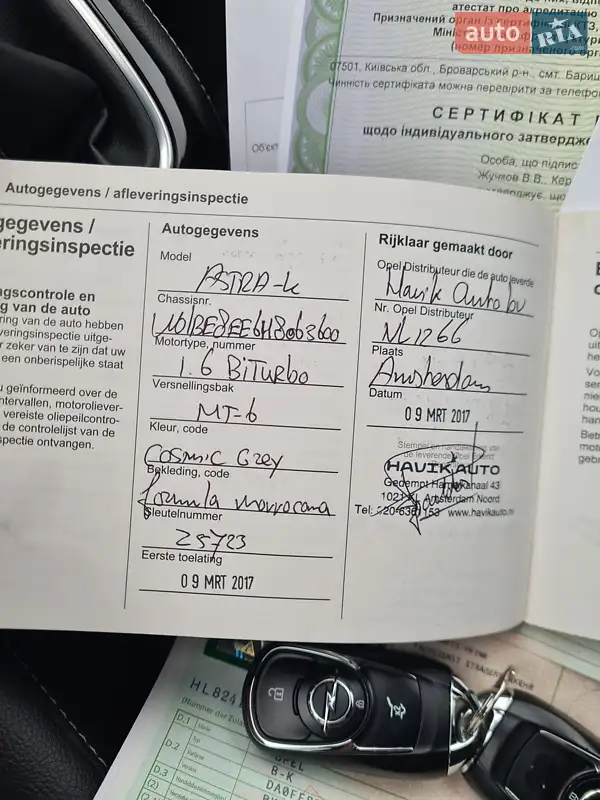 атестат про акредитацію
Призначений орган із сертифікації КТЗ,
auto RIA
.com
(номер призначеного орг
07501, Київська обл., Броварський р-н., смт. Бариш
Чинність сертифіката можна перевірити за телефо
СЕРТИФІКАТ
щодо індивідуального затвердже
Об'єкт
Особа, що підпис
Жучков В.В., Кер
Autogegevens / afleveringsinspectie
gegevens /
eringsinspectie
ngscontrole en
g van de auto
ering van de auto hebben
veringsinspectie uitge-
r zeker van te zijn dat uw
een onberispelijke staat
u geïnformeerd over de
ntervallen, motoroliever-
vereiste oliepeilcontro-
de controlelijst van de
spectie ontvangen.
Autogegevens
Model
ASTRA-K
Chassisnr.
W0LBE8EE6H8063600
Motortype, nummer
1.6 BiTurbo
Versnellingsbak
MT-6
Kleur, code
Cosmic Grey
Bekleding, code
formula morrocana
Sleutelnummer
Z5723
Eerste toelating
09 MRT 2017
Rijklaar gemaakt door
Opel Distributeur die de auto leverde
Havik Auto bv
Nr. Opel Distributeur
NL1266
Plaats
Amsterdam
Datum
09 MRT 2017
Stempel en handtekening van
de leverende Opel
HAVIK AUTO
Gedempt Hamerkanaal 43
1021 Amsterdam Noord
Tel: www.havikauto.nl
HL824
(Nummer der Zula
D.1
D.2
D.3
(2)
OPEL
B-K